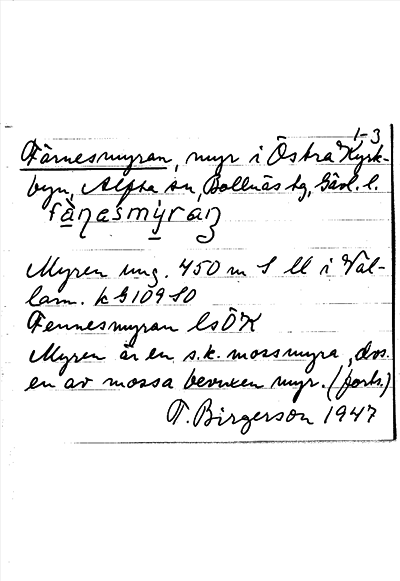 1-3
Färnesmyran, myr i Östra Kyrk-
byn, Alfta sn, Bollnäs tg, Gävl. l.
Myren ung. 450 m S ll i Väl-
lam. k G 109 SO
Fennesmyran lsÖK
Myren är en s.k. mossmyra, dvs.
en av mossa bevuxen myr. (forts.)
T. Birgerson 1947